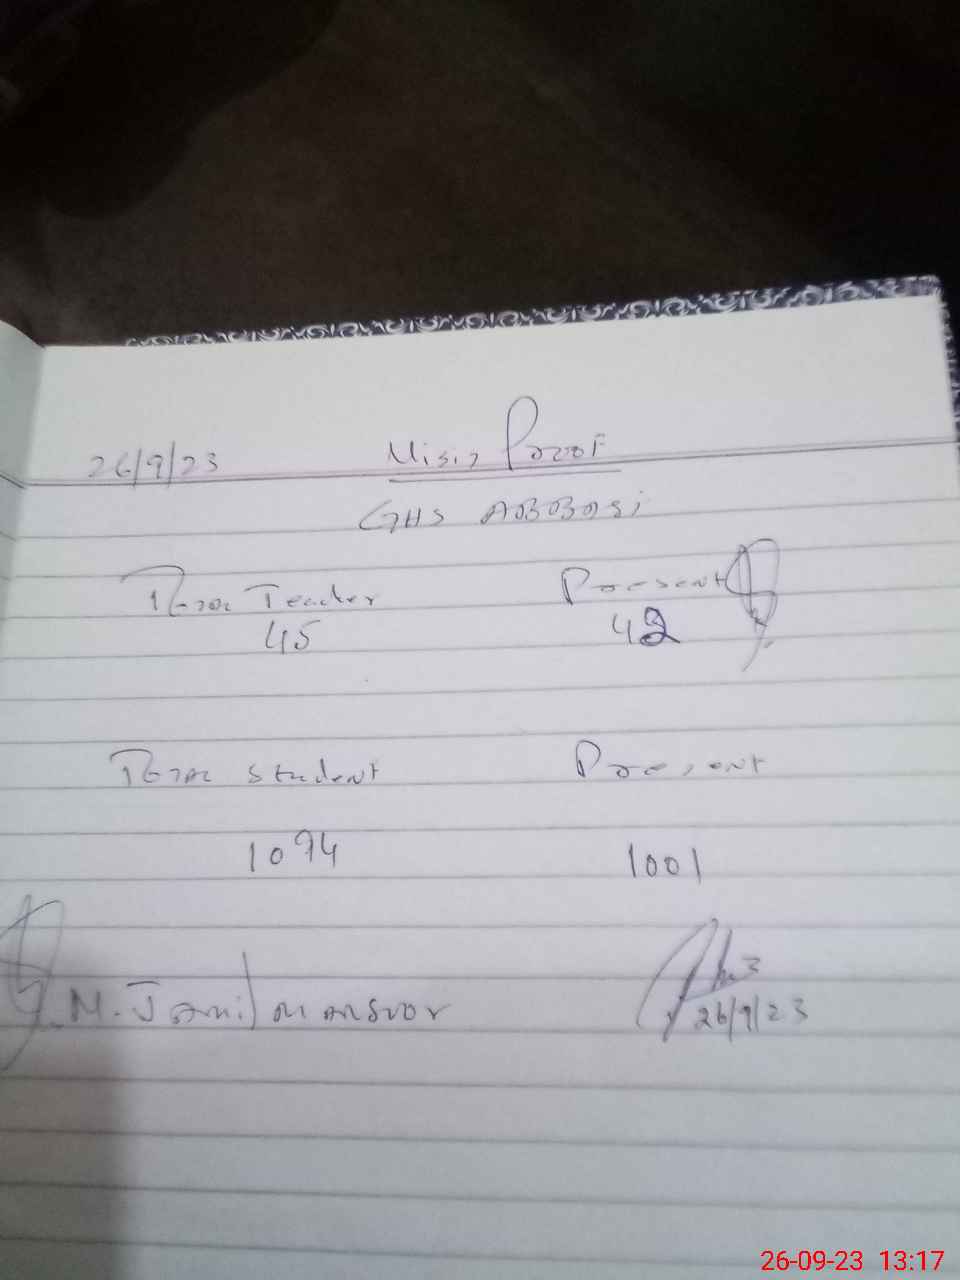 26/9/23 Misis Proof
GHS ABBasi
Total Teacher Present
45 42
Total Student Present
1094 1001
M. Jamil mansoor
26/9/23
26-09-23 13:17